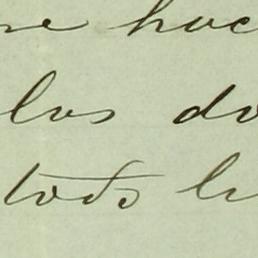 ne hac
los do
todo lo